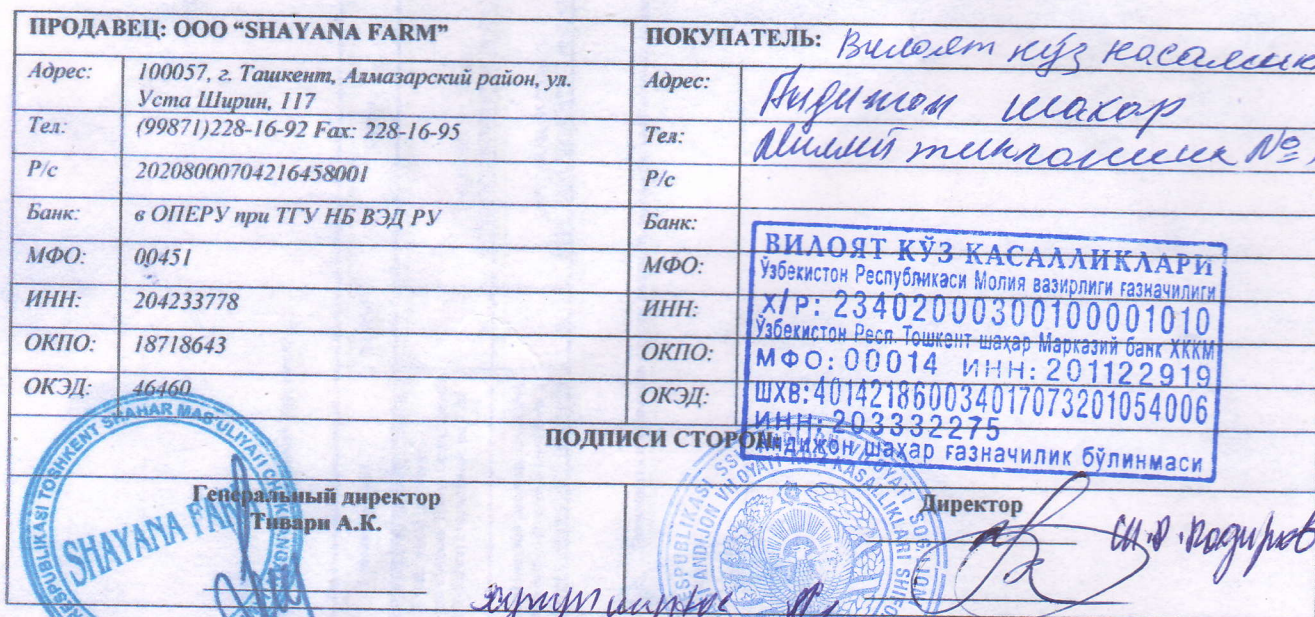 ПРОДАВЕЦ: ООО “SHAYANA FARM”
Адрес: 100057, г. Ташкент, Алмазарский район, ул. Уста Ширин, 117
Тел: (99871)228-16-92 Fax: 228-16-95
Р/с 20208000704216458001
Банк: в ОПЕРУ при ТГУ НБ ВЭД РУ
МФО: 00451
ИНН: 204233778
ОКПО: 18718643
ОКЭД: 46460
ПОКУПАТЕЛЬ: Вилоят кўз касаллик
Адрес: Андижон шахар
Тел: Миллий тикланиш №
Р/с
Банк:
МФО:
ИНН:
ОКПО:
ОКЭД:
ВИЛОЯТ КЎЗ КАСАЛЛИКЛАРИ
Ўзбекистон Республикаси Молия вазирлиги ғазначилиги
Х/Р: 23402000300100001010
Ўзбекистон Респ. Тошкент шаҳар Марказий банк ХККМ
МФО: 00014 ИНН: 201122919
ШХВ: 401421860034017073201054006
ИНН: 203332275
Андижон шаҳар ғазначилик бўлинмаси
ПОДПИСИ СТОРОН:
Генеральный директор
Тивари А.К.
Директор
TOSHKENT SHAHAR MAS'ULIYATI
SHAYANA FARM
ANDIJON VILOYATI KO'Z KASALLIKLARI